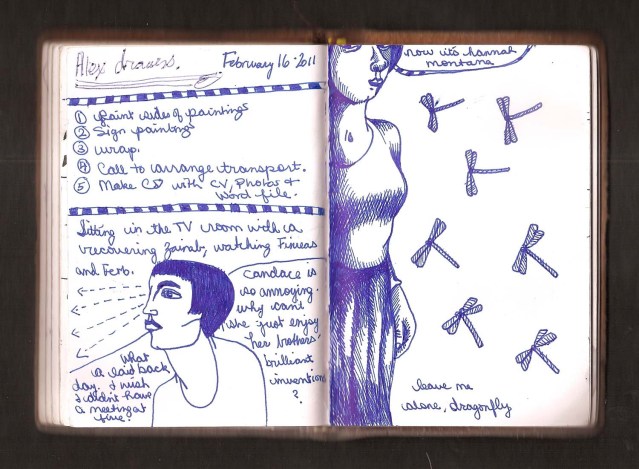 Alex draws.
February 16·2011
① Paint sides of paintings
② Sign paintings
③ wrap.
④ Call to arrange transport.
⑤ Make CD with CV, Photos +
word file.
Sitting in the TV room with a
recovering Zainab, watching Fineas
and Ferb.
Candace is
so annoying.
why can't
she just enjoy
her brothers'
brilliant
invention
?
what
a laid back
day. I wish
I didn't have
a meeting at
five!
now its hannah
montana
16
leave me
alone, dragonfly